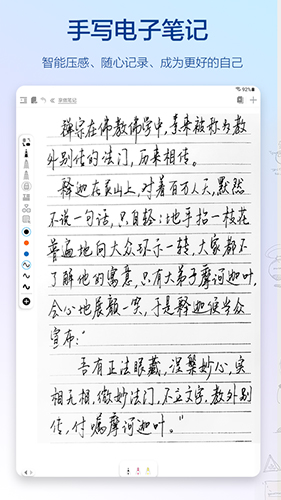 手写电子笔记
智能压感、随心记录、成为更好的自己
手写笔记
禅宗在佛教佛学中,素来被称为教
外别传的法门,历来相传。
释迦在灵山上,对着百万人天,默然
不说一句话,只自轻地手拈一枝花
普遍地向大众环示一转,大家都不
了解他的寓意,只有大弟子摩诃迦叶,
会心地展颜一笑,于是释迦便当众
宣布:"
吾有正法眼藏,涅槃妙心,实
相无相,微妙法门,不立文字,教外别
传,付嘱摩诃迦叶。"